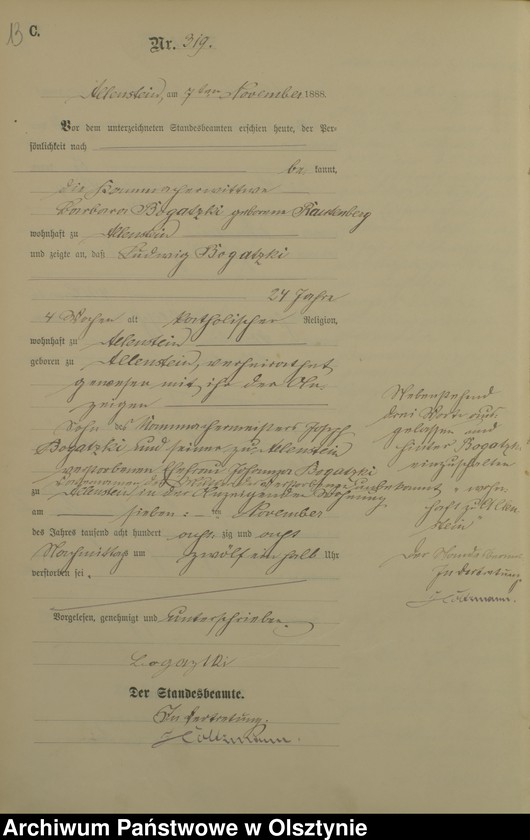 13 C.
Nr. 319.
Allenstein, am 7ten November 1888.
Vor dem unterzeichneten Standesbeamten erschien heute, der Per-
sönlichkeit nach
be kannt,
die Kammacherwittwe
Barbara Bogatzki geborene Rautenberg
wohnhaft zu Allenstein
und zeigte an, daß Ludwig Bogatzki
24 Jahre
4 Wochen alt katholischer Religion,
wohnhaft zu Allenstein
geboren zu Allenstein, verheirathet
gewesen mit ihr der An-
zeigen
Sohn des Kammachermeisters Joseph
Bogatzki und seiner zu Allenstein
verstorbenen Ehefrau Johanna Bogatzki
zu Allenstein in der Anzeigenden Wohnung
am sieben ten November
des Jahres tausend acht hundert acht zig und acht
Nachmittag um zwölf ein halb Uhr
verstorben sei.
Vorgelesen, genehmigt und unterschrieben.
Bogatzki
Der Standesbeamte.
In Vertretung.
Holtzmann.
Nebenstehend
drei Worte aus-
gelassen und
hinter Bogatzki
einzuschalten
"wohn-
haft zu Allen-
stein"
Der Standesbeamte
In Vertretung
Holtzmann.
Archiwum Państwowe w Olsztynie